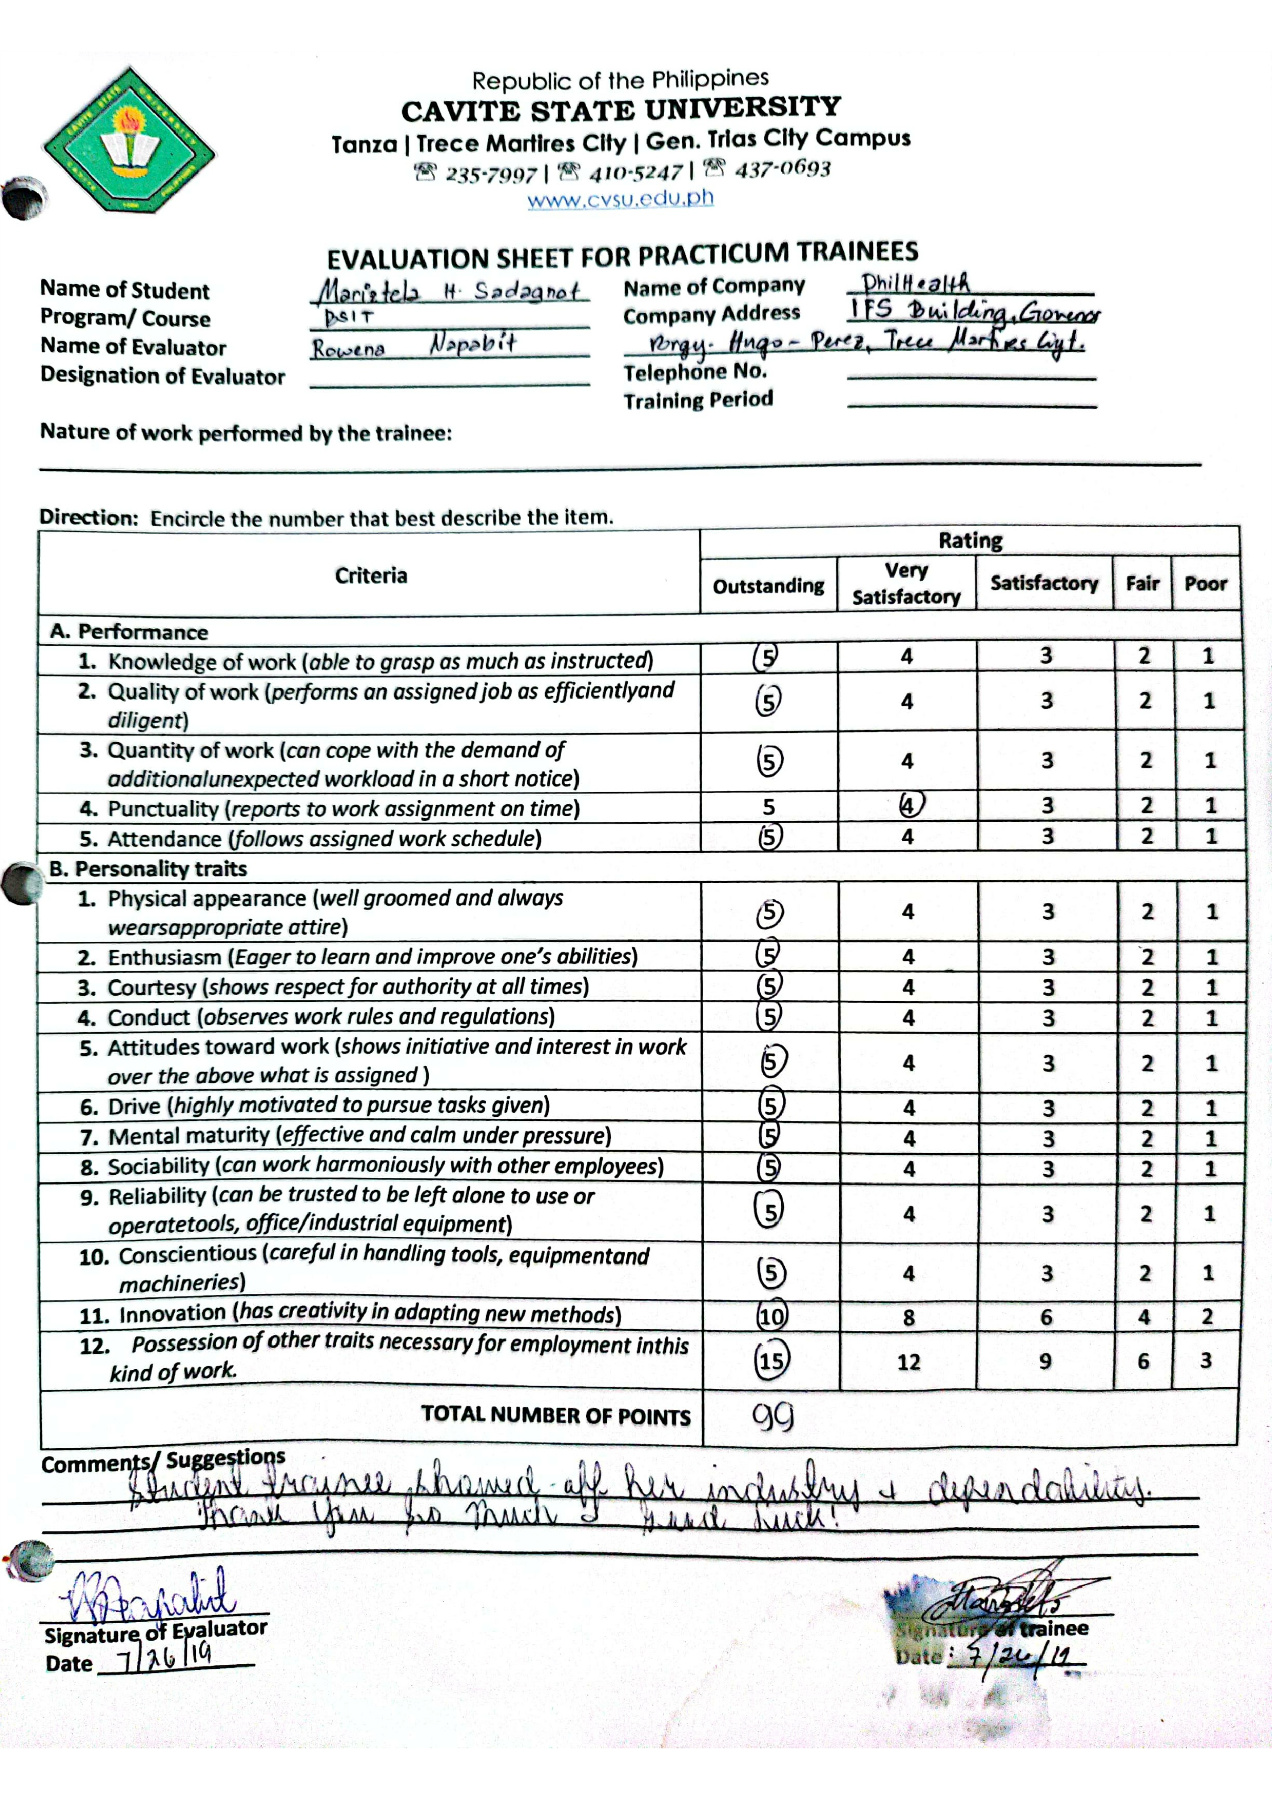 Republic of the Philippines
CAVITE STATE UNIVERSITY
Tanza | Trece Martires City | Gen. Trias City Campus
☏ 235-7997 | ☏ 410-5247 | ☏ 437-0693
www.cvsu.edu.ph
EVALUATION SHEET FOR PRACTICUM TRAINEES
Name of Student Maristela H. Sadagnot
Name of Company PhilHealth
Program/ Course BSIT
Company Address IFS Building, Governor
Name of Evaluator Rowena Napabit
Brgy. Hugo - Perez, Trece Martires City.
Designation of Evaluator
Telephone No.
Training Period
Nature of work performed by the trainee:
Direction: Encircle the number that best describe the item.
Criteria Rating
Outstanding Very Satisfactory Satisfactory Fair Poor
A. Performance
1. Knowledge of work (able to grasp as much as instructed) 5 4 3 2 1
2. Quality of work (performs an assigned job as efficientlyand
diligent) 5 4 3 2 1
3. Quantity of work (can cope with the demand of
additionalunexpected workload in a short notice) 5 4 3 2 1
4. Punctuality (reports to work assignment on time) 5 4 3 2 1
5. Attendance (follows assigned work schedule) 5 4 3 2 1
B. Personality traits
1. Physical appearance (well groomed and always
wearsappropriate attire) 5 4 3 2 1
2. Enthusiasm (Eager to learn and improve one's abilities) 5 4 3 2 1
3. Courtesy (shows respect for authority at all times) 5 4 3 2 1
4. Conduct (observes work rules and regulations) 5 4 3 2 1
5. Attitudes toward work (shows initiative and interest in work
over the above what is assigned ) 5 4 3 2 1
6. Drive (highly motivated to pursue tasks given) 5 4 3 2 1
7. Mental maturity (effective and calm under pressure) 5 4 3 2 1
8. Sociability (can work harmoniously with other employees) 5 4 3 2 1
9. Reliability (can be trusted to be left alone to use or
operatetools, office/industrial equipment) 5 4 3 2 1
10. Conscientious (careful in handling tools, equipmentand
machineries) 5 4 3 2 1
11. Innovation (has creativity in adapting new methods) 10 8 6 4 2
12. Possession of other traits necessary for employment inthis
kind of work. 15 12 9 6 3
TOTAL NUMBER OF POINTS 99
Comments/ Suggestions
Student trainee showed off her industry & dependability.
Thank You so Much & Good Luck!
Signature of Evaluator
Signature of trainee
Date 7/26/19
Date: 7/26/19